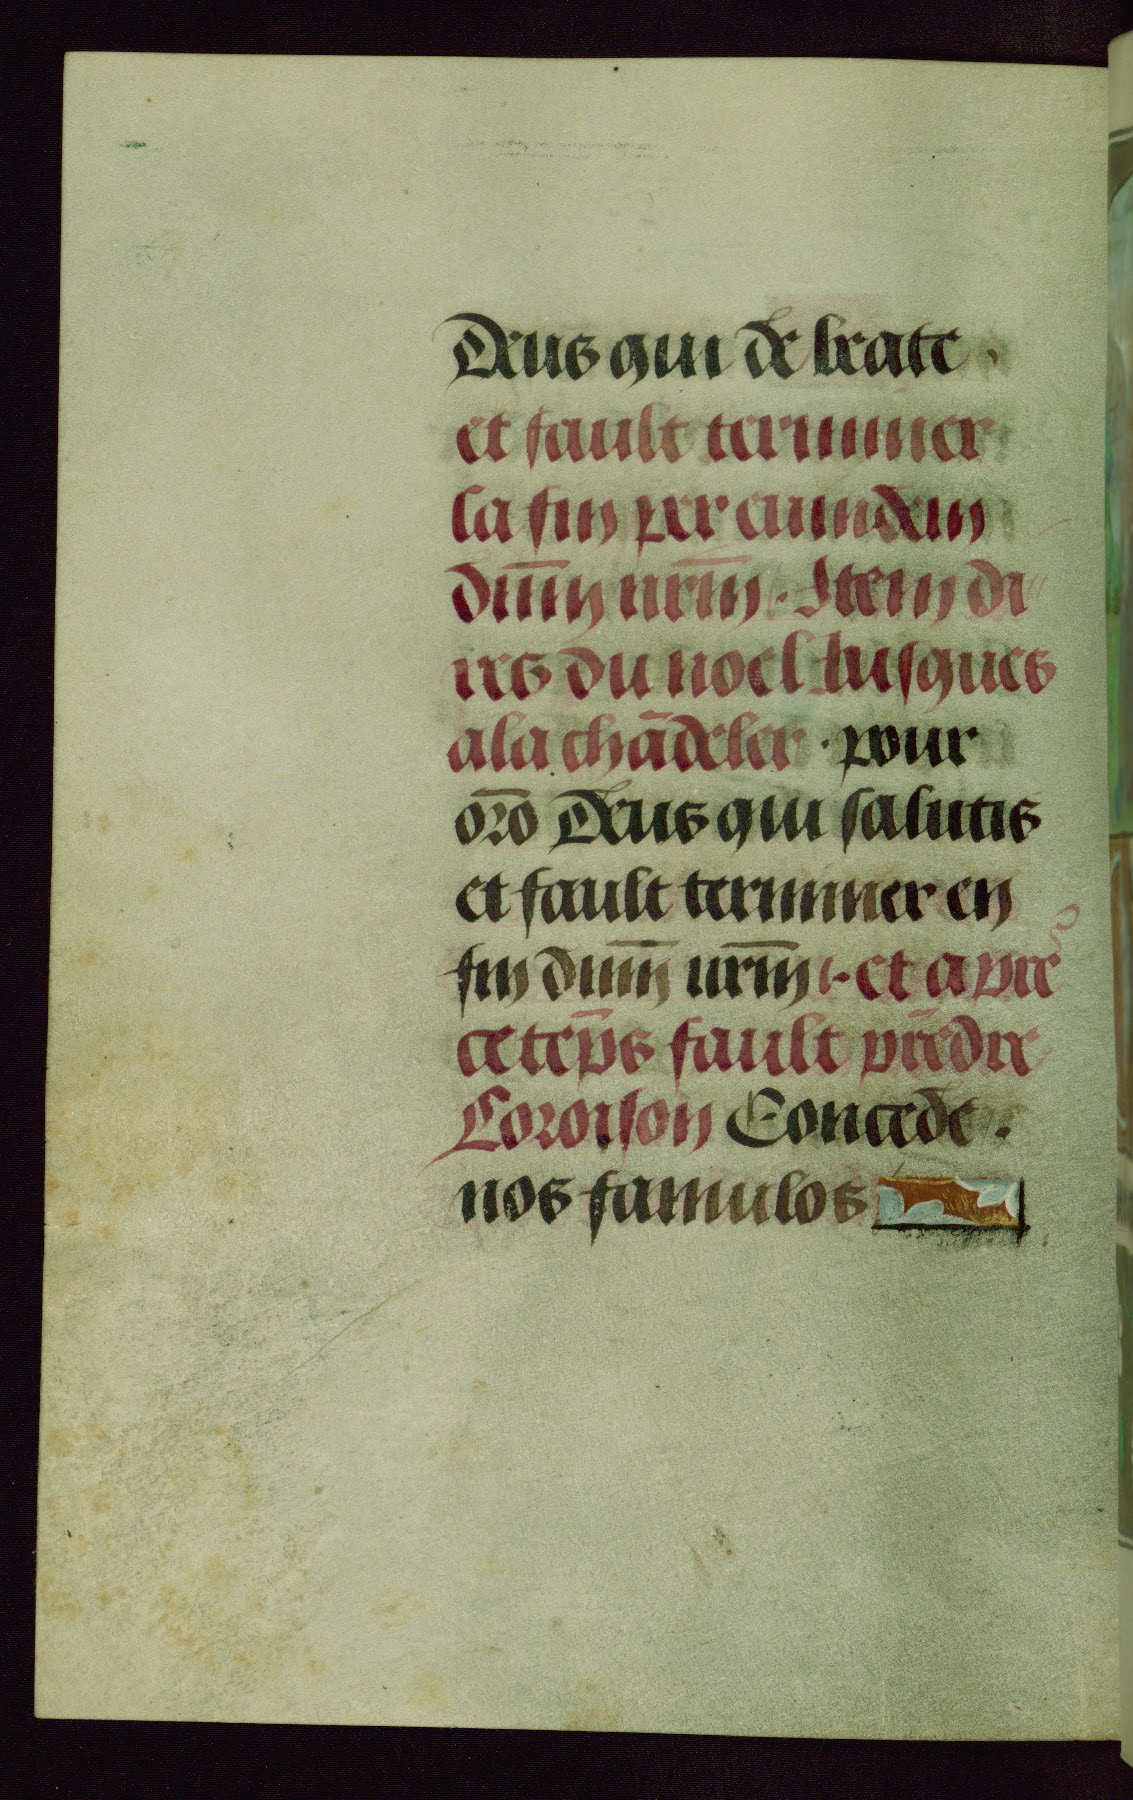 Deus qui de beate .
et fault terminer
la fin per eumdem
dnm̄ nrm̄ . Item di
res du noel Jusques
a la chādeler · pour
orō Deus qui salutis
et fault terminer en
fin dnm̄ nrm̄ . et apres
ce tēps fault prēdre
Loroison Concede .
nos famulos